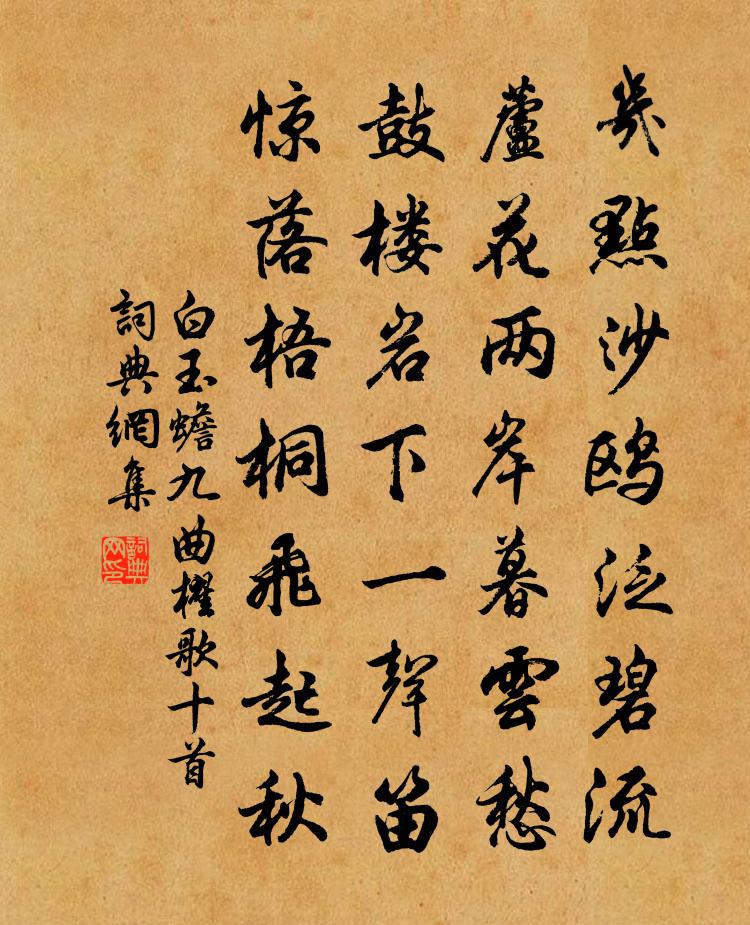 幾點沙鸥泛碧流
蘆花两岸暮雲愁
鼓楼岩下一聲笛
惊落梧桐飛起秋
白玉蟾九曲櫂歌十首
詞典網集
詞典网印